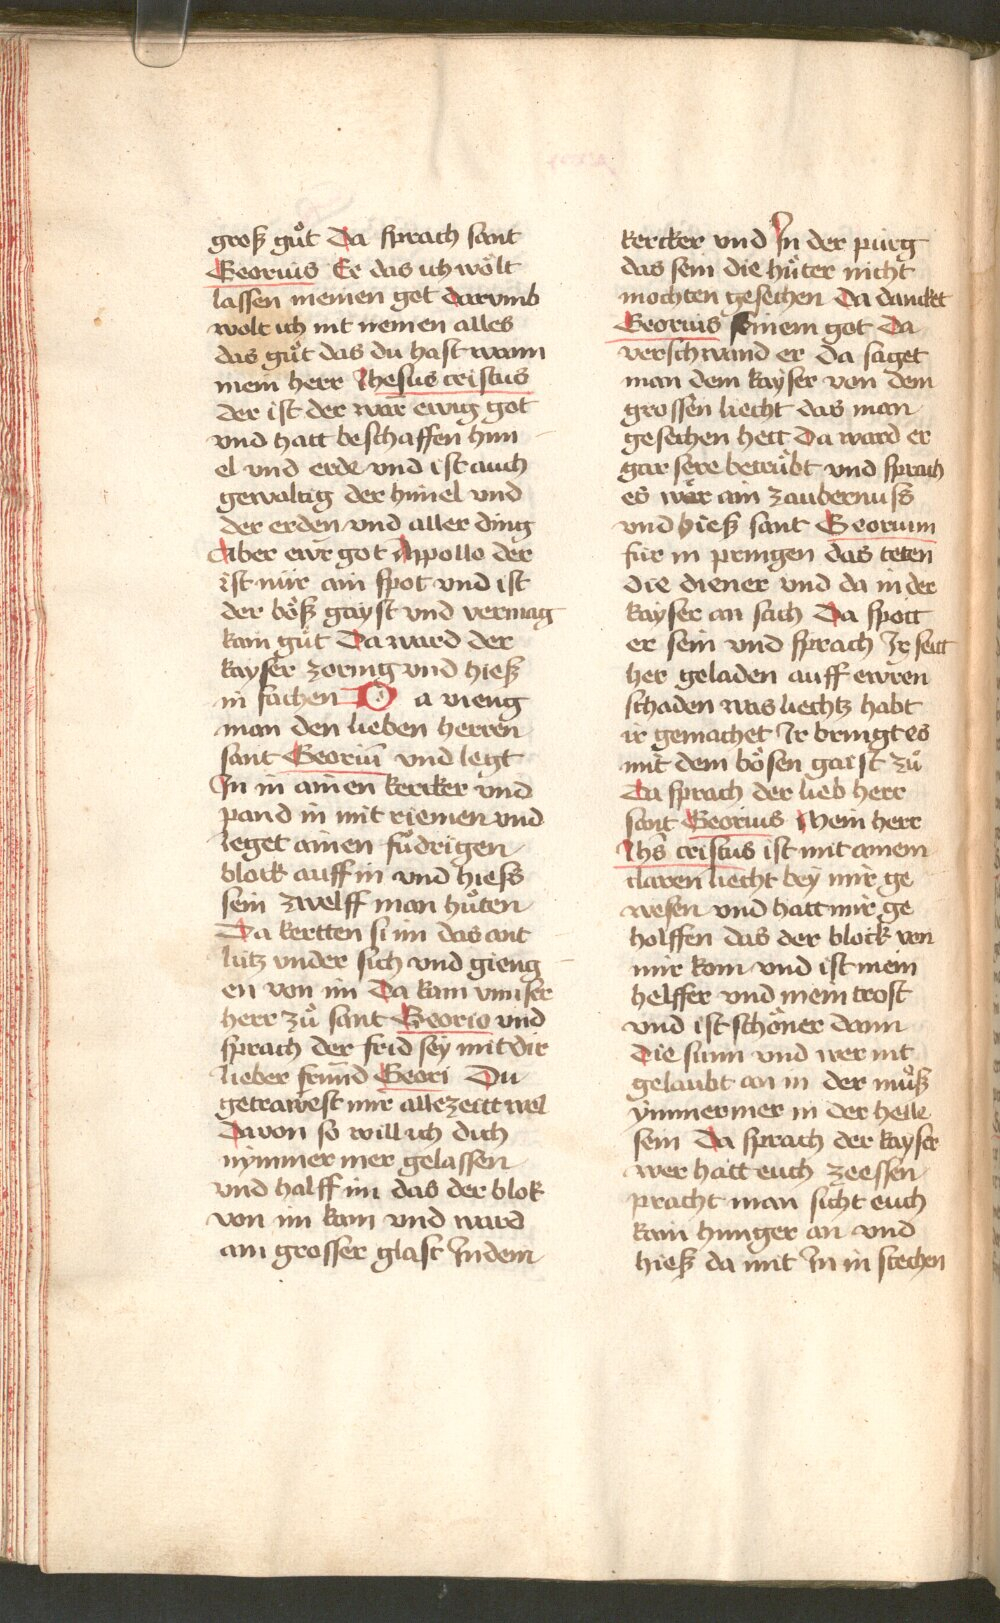 groß gůt Da sprach sant
Georius Er das ich wolt
lassen meinen got darvmb
wolt ich nit nemen alles
das gůt das du hast wann
mein herr Jhesus cristus
der ist der war ewig got
vnd hatt beschaffen him
el vnd erde vnd ist auch
gewaltig der himel vnd
der erden vnd aller ding
Aber ewr got Appollo der
ist mir ain spot vnd ist
der böß gayst vnd vermag
kain gůt Da ward der
kayser zornig vnd hieß
in fachen Da vieng
man den lieben herren
sant Georiū vnd legt
In in ainen kercker vnd
pand in mit riemen vnd
leget ainen fůdrigen
block auff in vnd hiess
sein zwelff man hůten
Da kertten si im das ant
lütz vnder sich vnd gieng
en von im Da kam vnnser
herr zů sant Georio vnd
sprach der frid sey mit dir
lieber frund Geori Du
getrawest mir alle zeitt wol
Davon so will ich dich
nymmer mer gelassen
vnd halff im das der blok
von im kam vnd ward
ain grosser glast Jn dem
kercker vnd Jn der purg
das sein die hůter nicht
mochten gesechen Da dancket
Georius seinem got Da
verschwand er Da saget
man dem kayser von dem
grossen liecht das man
gesechen hett Da ward er
gar sere betrůbt vnd sprach
es wär ain zaubernuss
vnd hieß sant Georium
für in pringen das teten
die diener vnd da in der
kayser an sach Da spott
er sein vnd sprach Jr seitt
her geladen auff ewren
schaden was liechtz habt
ir gemachet Jr bringt es
mit dem bösen gaist zů
Da sprach der lieb herr
sant Georius Mein herr
Jhs cristus ist mit ainem
claren liecht bey mir ge
wesen vnd hatt mir ge
holffen das der block von
mir kom vnd ist mein
helffer vnd mein trost
vnd ist schöner dann
die sunn vnd wer nit
gelaubt an in der můß
ymmer mer in der helle
sein Da sprach der kayser
wer hatt euch ze essen
pracht man sicht euch
kain hunger an vnd
hieß da mit Jn in stechen